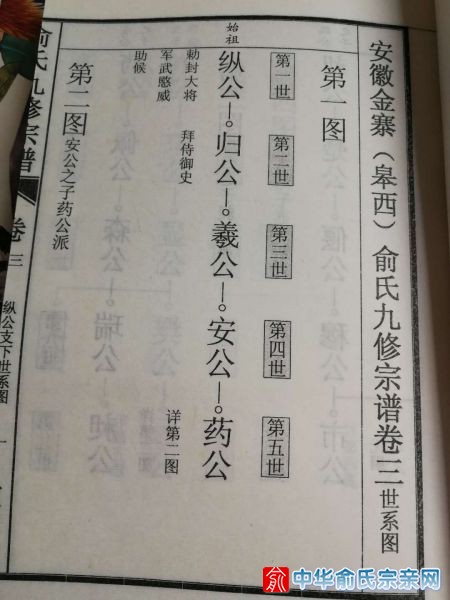 安徽金寨（皋西）俞氏九修宗谱卷三世系图
第一图
第一世
第二世
第三世
第四世
第五世
始祖
纵公
归公
羲公
安公
药公
勅封大将
军武愍威
助候
拜侍御史
详第二图
第二图安公之子药公派
俞氏九修宗谱
卷三
纵公支下世系图
一
俞
中华俞氏宗亲网